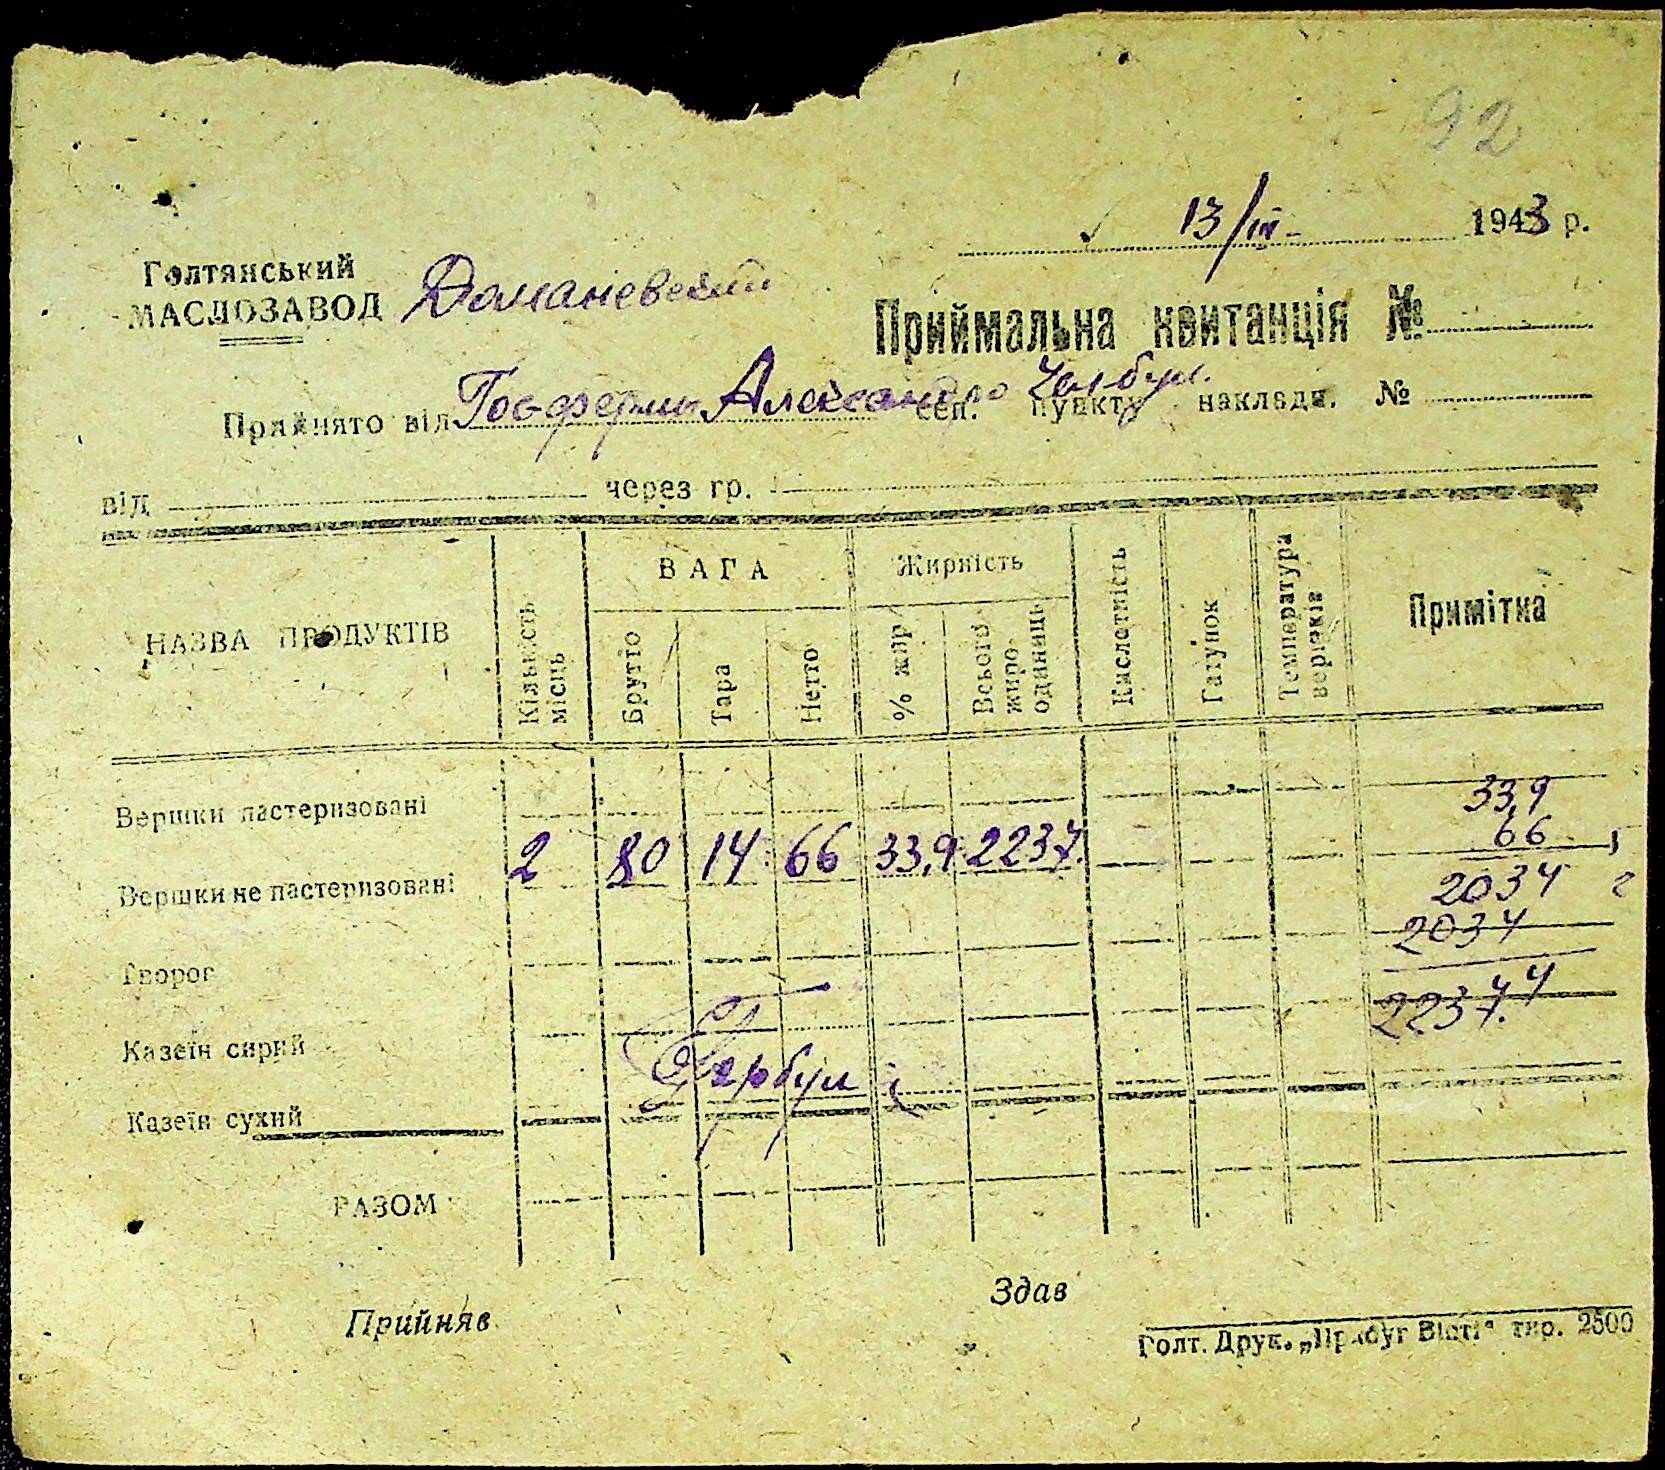 92
13/III- 1943 р.
Голтянський
МАСЛОЗАВОД Доманевский
Приймальна квитанція №
Прийнято від Госферми Александро сеп. пункту накладн. №
від через гр.
НАЗВА ПРОДУКТІВ
Кількість місць
ВАГА
Брутто
Тара
Нетто
Жирність
% жир
Всього жиро-одиниць
Кислотність
Гатунок
Температура вершків
Примітка
Вершки пастеризовані 33,9
66
Вершки не пастеризовані 2 80 14 66 33,9 2237.
2034
2034
Творог
2237.4
Казеїн сирий
Казеїн сухий
РАЗОМ
Прийняв
Здав
Голт. Друк. „Прибуг Вісті" тир. 2500